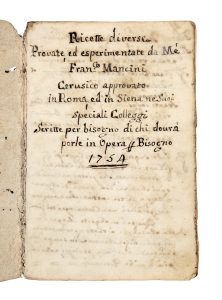 Ricette diverse
Provate ed esperimentate da Mé
Fran.co Mancini
Cerusico approvato
in Roma, ed in Siena ne suoi
speciali Colleggi
Scritte per bisogno di chi dovrà
porle in Opera Bisogno
1754